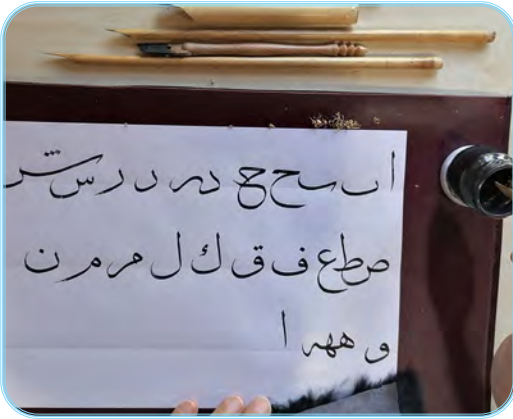 ا ں س ح ح د ر ں د ر س س
ص ط ع ف ق ك ل م م ن
و ه هه ا